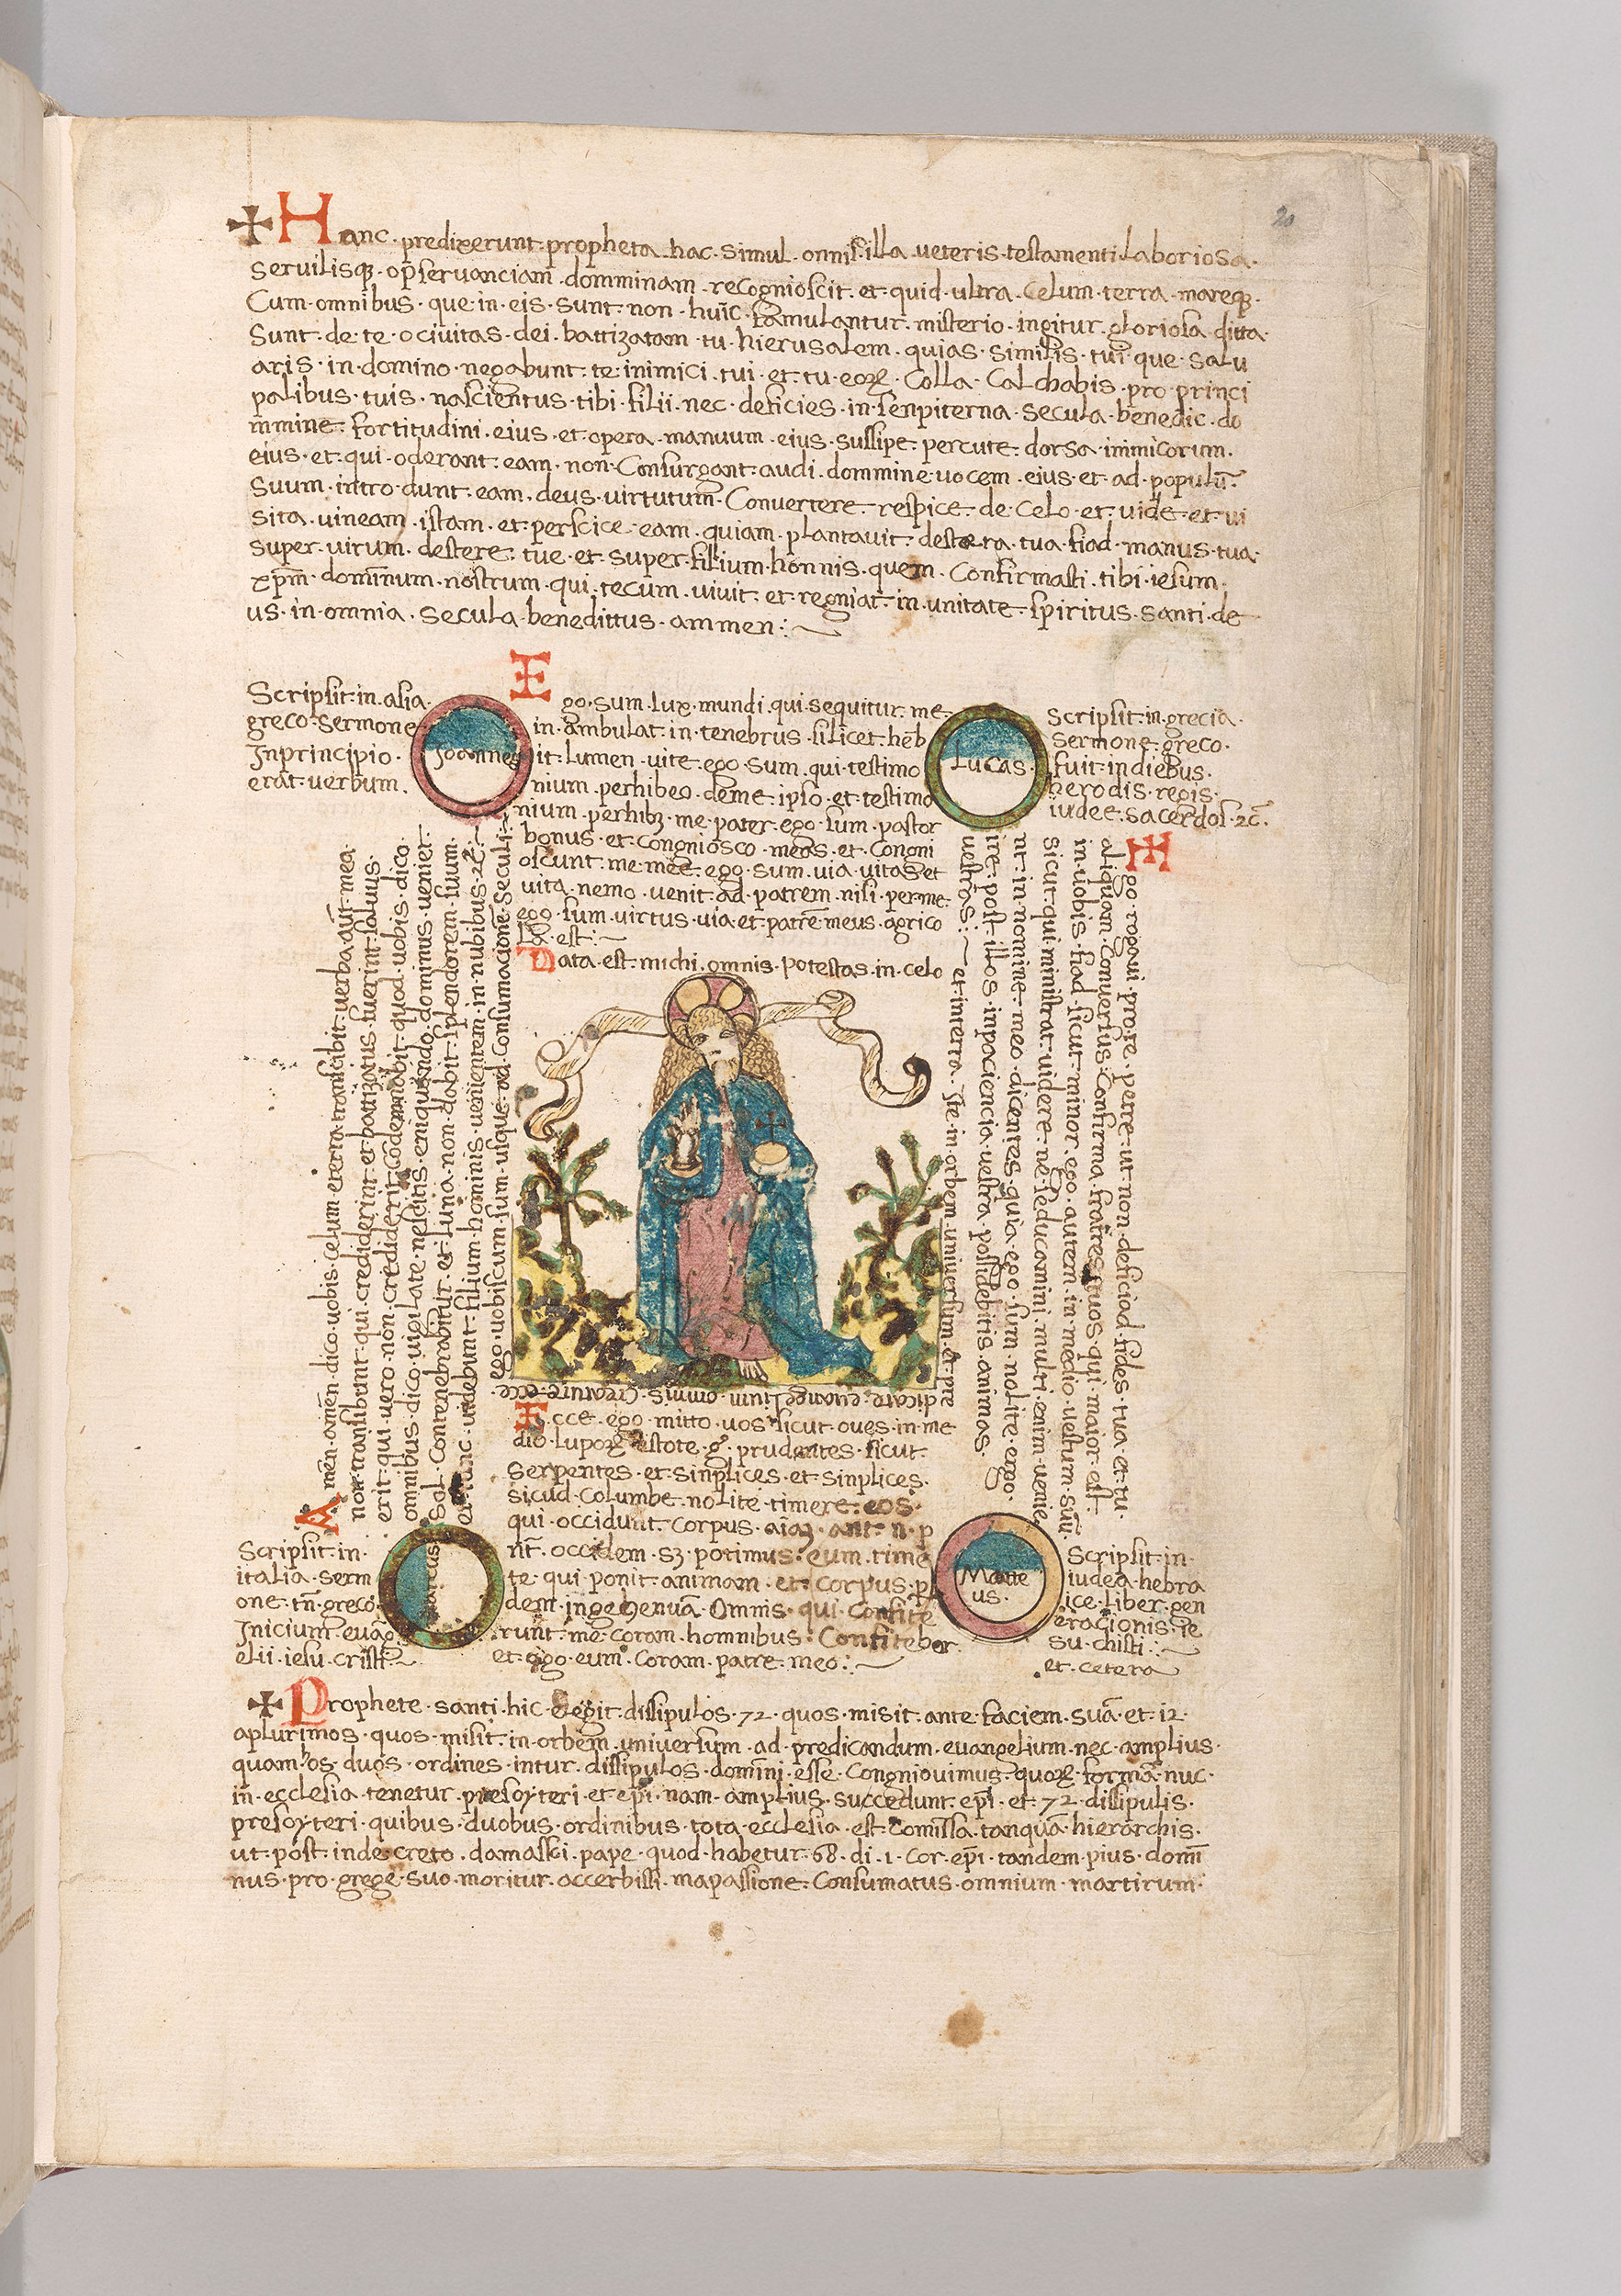 20
✠ Hanc · predixerunt · propheta · hac · simul · omnis · illa · veteris · testamenti · laboriosa ·
servilisqꝫ · opservanciam̄ · domminam · recognioscit · et · quid · ultra · celum · terra · mareqꝫ ·
Cum · omnibus · que · in · eis · sunt · non · huīc · famulantur · misterio · ingitur · gloriosa · ditta ·
Sunt · de · te · o civitas · dei · battizatam · tu · hierusalem · quias · similis · tui · que · salu
aris · in · domino · negabunt · te · inimici · tui · et · tu · eoꝝ · Colla · Calchabis · pro · princi
palibus · tuis · nascientus · tibi · filii · nec · deficies · in · senpiterna · secula · benedic · do
m̄mine · fortitudini · eius · et · opera · manuum · eius · sussipe · percute · dorsa · inimicorum ·
eius · et · qui · oderant · eam · non · Consurgant · audi · dommine · vocem · eius · et · ad · populū ·
suum · intro · dunt · eam · deus · virtutum · Convertere · respice · de · Celo · et · vide · et · vi
sita · vineam · istam · et · perscice · eam · quiam · plantavit · destera · tua · fiad · manus · tua ·
super · virum · destere · tue · et · super · filium · honnis · quem · Confirmasti · tibi · iesum ·
xp̄m · domīnum · nostrum · qui · tecum · vivit · et · regniat · in · unitate · spiritus · santi · de
us · in · omnia · secula · benedittus · ammen :~
Scripsit · in · asia ·
greco · sermone
Inprincipio ·
erat · verbum ·
Joannes
Ego · sum · lux · mundi · qui · sequitur · me ·
in · ambulat · in · tenebrus · silicet · hēb
it · lumen · vite · ego · sum · qui · testimo
nium · perhibeo · deme · ipso · et · testimo
nium · perhibꝫ · me · pater · ego · sum · pastor
bonus · et · congniosco · meas · et · Congni
oscunt · me · mee · ego · sum · via · vitas et
vita · nemo · venit · ad · patrem · nisi · per · me ·
ego · sum · virtus · via · et · patrē · meus · agrico
la · est :~
Lucas ·
Scripsit · in · grecia ·
sermone · greco ·
fuit · indiebus ·
herodis · regis ·
iudee · sacerdos · 2c̄ ·
Data · est · michi · omnis · potestas · in · celo
et · interra · Ite · in · orbem · universum · et · pre
dicate · evangelium · omnis · creature · ecce
ego · vobiscum · sum · usque · ad · Consumacionē · Seculi :
Amēn · amēn · dico · vobis · celum · et erra · transibit · verba · aūt · mea
non · transibunt · qui · crediderint · et · battizatus · fuerint · salvus ·
erit · qui · vero · non · crediderit · Codemnabit · quod · vobis · dico ·
omnibus · dico · vigilate · nescitis · eniquando · dominus · veniet ·
Sol · Contenebrabitur · et · luna · non · dabit · splendorem · suum ·
et · tunc · videbunt · filium · hominis · venientem · in · nubibus · 2c̄ :~
Ego · rogavi · pro · te · perre · ut · non · deficiad · fides · tua · et · tu ·
aliquiam · Conversus · Confirma · fratres · tuos · qui · maior · est ·
in · vobis · fiad · sicut · minor · ego · autem · in · medio · vestum · sūm ·
sicut · qui · ministrat · videre · ne · seducamini · multi · enim · venie
nt · in · nomine · meo · dicentes · quia · ego · sum · nolite · ergo ·
ire · post · illos · inpaciencia · vestra · possidebitis · animas ·
vestras :~
Ecce · ego · mitto · vos · sicut · oves · in · me
dio · lupoꝝ · estote · g̊ · prudentes · sicut ·
serpentes · et · sinplices · et · sinplices ·
sicud · Columbe · nolite · timere · eos ·
qui · occidunt · corpus · aīaꝫ · ant · n̄ · p
nt̄ · occidem · sꝫ · potimus · eum · time
te · qui · ponit · animam · et · corpus · p
dem · ingehennā · Omnis · qui · Confite
runt · me · coram · homnibus · Confitebor
et · ego · eum · Coram · patre · meo :~
Scripsit · in ·
italia · serm
one · tn̄ · greco ·
Inicium · evāg
elii · iesu · cristi :~
Marcus
Matte
us ·
Scripsit · in ·
iudea · hebra
ice · liber · gen
eracionis · ie
su · christi :~
et · cetera
✠ Prophete · santi · hic · elegit · dissipulos · 72 · quos · misit · ante · faciem · suā · et · 12 ·
aplurimos · quos · misit · in · orbem · universum · ad · predicandum · evangelium · nec · amplius ·
quam · hos · duos · ordines · intur · dissipulos · domīni · esse · Congniovimus · quoꝝ · formā · nuc ·
in · ecclesia · tenetur · presbyteri · et · ep̄i · nam · amplius · succedunt · ep̄i · et · 72 · dissipulis ·
presbyteri · quibus · duobus · ordinibus · tota · ecclesia · est · Comīssa · tanquā · hierarchis ·
ut · post · inde · creto · damasci · pape · quod · habetur · 68 · di · 1 · Cor · ep̄i · tandem · pius · domī
nus · pro · grege · suo · moritur · accerbissi · mapassione · Consumatus · omnium · martirum ·